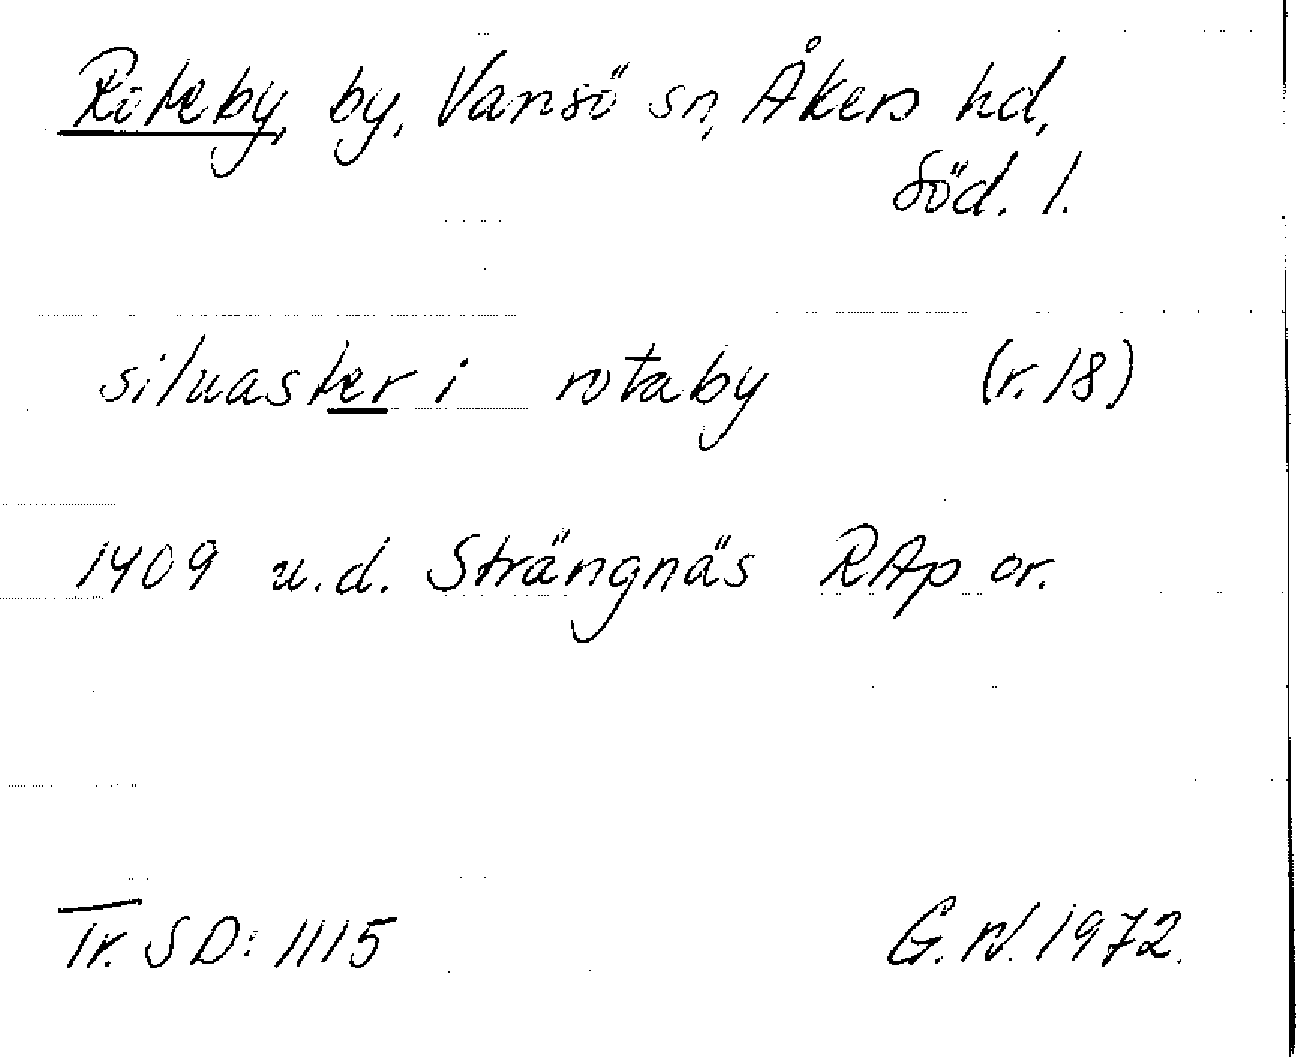 Roteby, by, Vansö sn, Åkers hd,
Söd. l.
siluaster i rotaby (r. 18)
1409 u.d. Strängnäs RAp or.
Tr. SD: 1115 G.N. 1972.